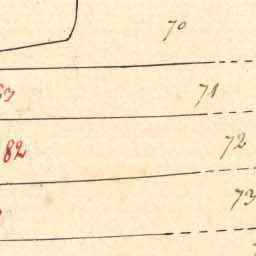 70
71
82
72
73